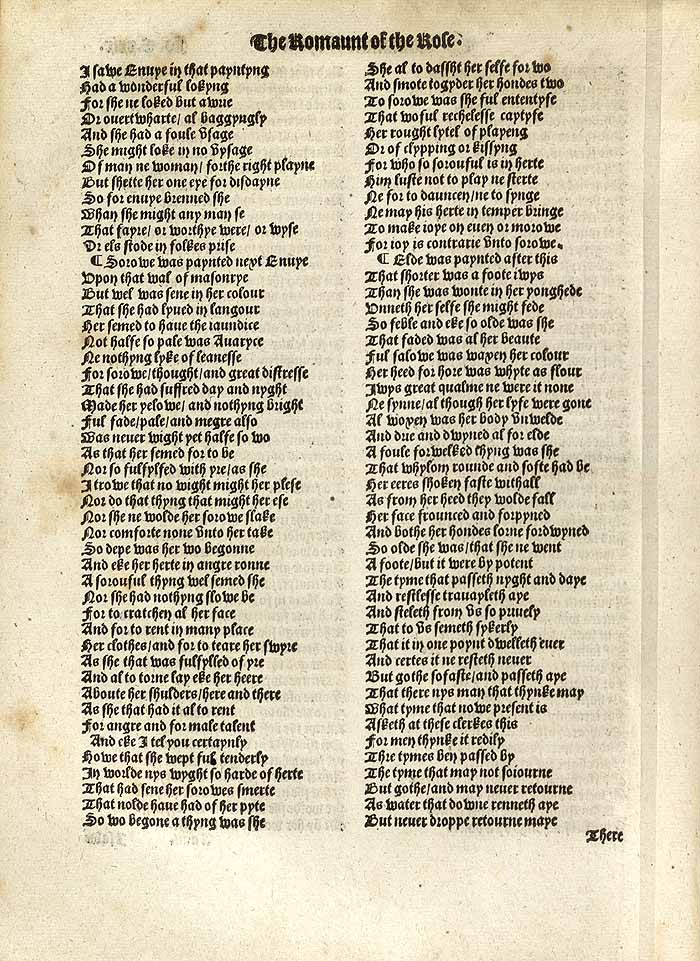 The Romaunt of the Rose.
I sawe Enuye in that payntyng
Had a wonderful lokyng
For she ne loked but awrie
Or ouertwharte/ al baggyngly
And she had a foule vsage
She might loke in no vysage
Of man ne woman/ forthe right playne
But shette her one eye for disdayne
So for enuye brenned she
Whan she might any man se
That fayre/ or worthye were/ or wyse
Or els stode in folkes prise
¶ Sorowe was paynted next Enuye
Vpon that wal of masonrye
But wel was sene in her colour
That she had lyued in langour
Her semed to haue the iaundice
Not halfe so pale was Auaryce
Ne nothyng lyke of leanesse
For sorowe/thought/and great distresse
That she had suffred day and nyght
Made her yelowe/ and nothyng bright
Ful fade/pale/and megre also
Was neuer wight yet halfe so wo
As that her semed for to be
Nor so fulfylfed with yre/as she
I trowe that no wight might her plese
Nor do that thyng that might her ese
Nor she ne wolde her sorowe slake
Nor comforte none vnto her take
So depe was her wo begonne
And eke her herte in angre ronne
A sorouful thyng wel semed she
Nor she had nothyng slowe be
For to cratchen al her face
And for to rent in many place
Her clothes/and for to teare her swyre
As she that was fulfylled of yre
And al to torne lay eke her heere
Aboute her shulders/here and there
As she that had it al to rent
For angre and for male talent
And eke I tel you certaynly
Howe that she wept ful tenderly
In worlde nys wyght so harde of herte
That had sene her sorowes smerte
That nolde haue had of her pyte
So wo begone a thyng was she
She al to dassht her selfe for wo
And smote togyder her hondes two
To sorowe was she ful ententyfe
That woful rechelesse captyfe
Her rought lytel of playeng
Or of clypping or kissyng
For who so sorouful is in herte
Him luste not to play ne sterte
Ne for to dauncen/ne to synge
Ne may his herte in temper bringe
To make ioye on euen or morowe
For ioy is contrarie vnto sorowe.
¶ Elde was paynted after this
That shorter was a foote iwys
Than she was wonte in her yonghede
Vnneth her selfe she might fede
So feble and eke so olde was she
That faded was al her beaute
Ful salowe was waxen her colour
Her heed for hore was whyte as flour
Iwys great qualme ne were it none
Ne synne/al though her lyfe were gone
Al woxen was her body vnwelde
And drie and dwyned al for elde
A foule forwelked thyng was she
That whylom rounde and softe had be
Her eeres shoken faste withall
As from her heed they wolde fall
Her face frounced and forpyned
And bothe her hondes lorne fordwyned
So olde she was/that she ne went
A foote/but it were by potent
The tyme that passeth nyght and daye
And restlesse trauayleth aye
And steleth from vs so priuely
That to vs semeth sykerly
That it in one poynt dwelleth euer
And certes it ne resteth neuer
But gothe so faste/and passeth aye
That there nys man that thynke may
What tyme that nowe present is
Asketh at these clerkes this
For men thynke it redily
Thre tymes ben passed by
The tyme that may not soiourne
But gothe/and may neuer retourne
As water that downe renneth aye
But neuer droppe retourne maye
There